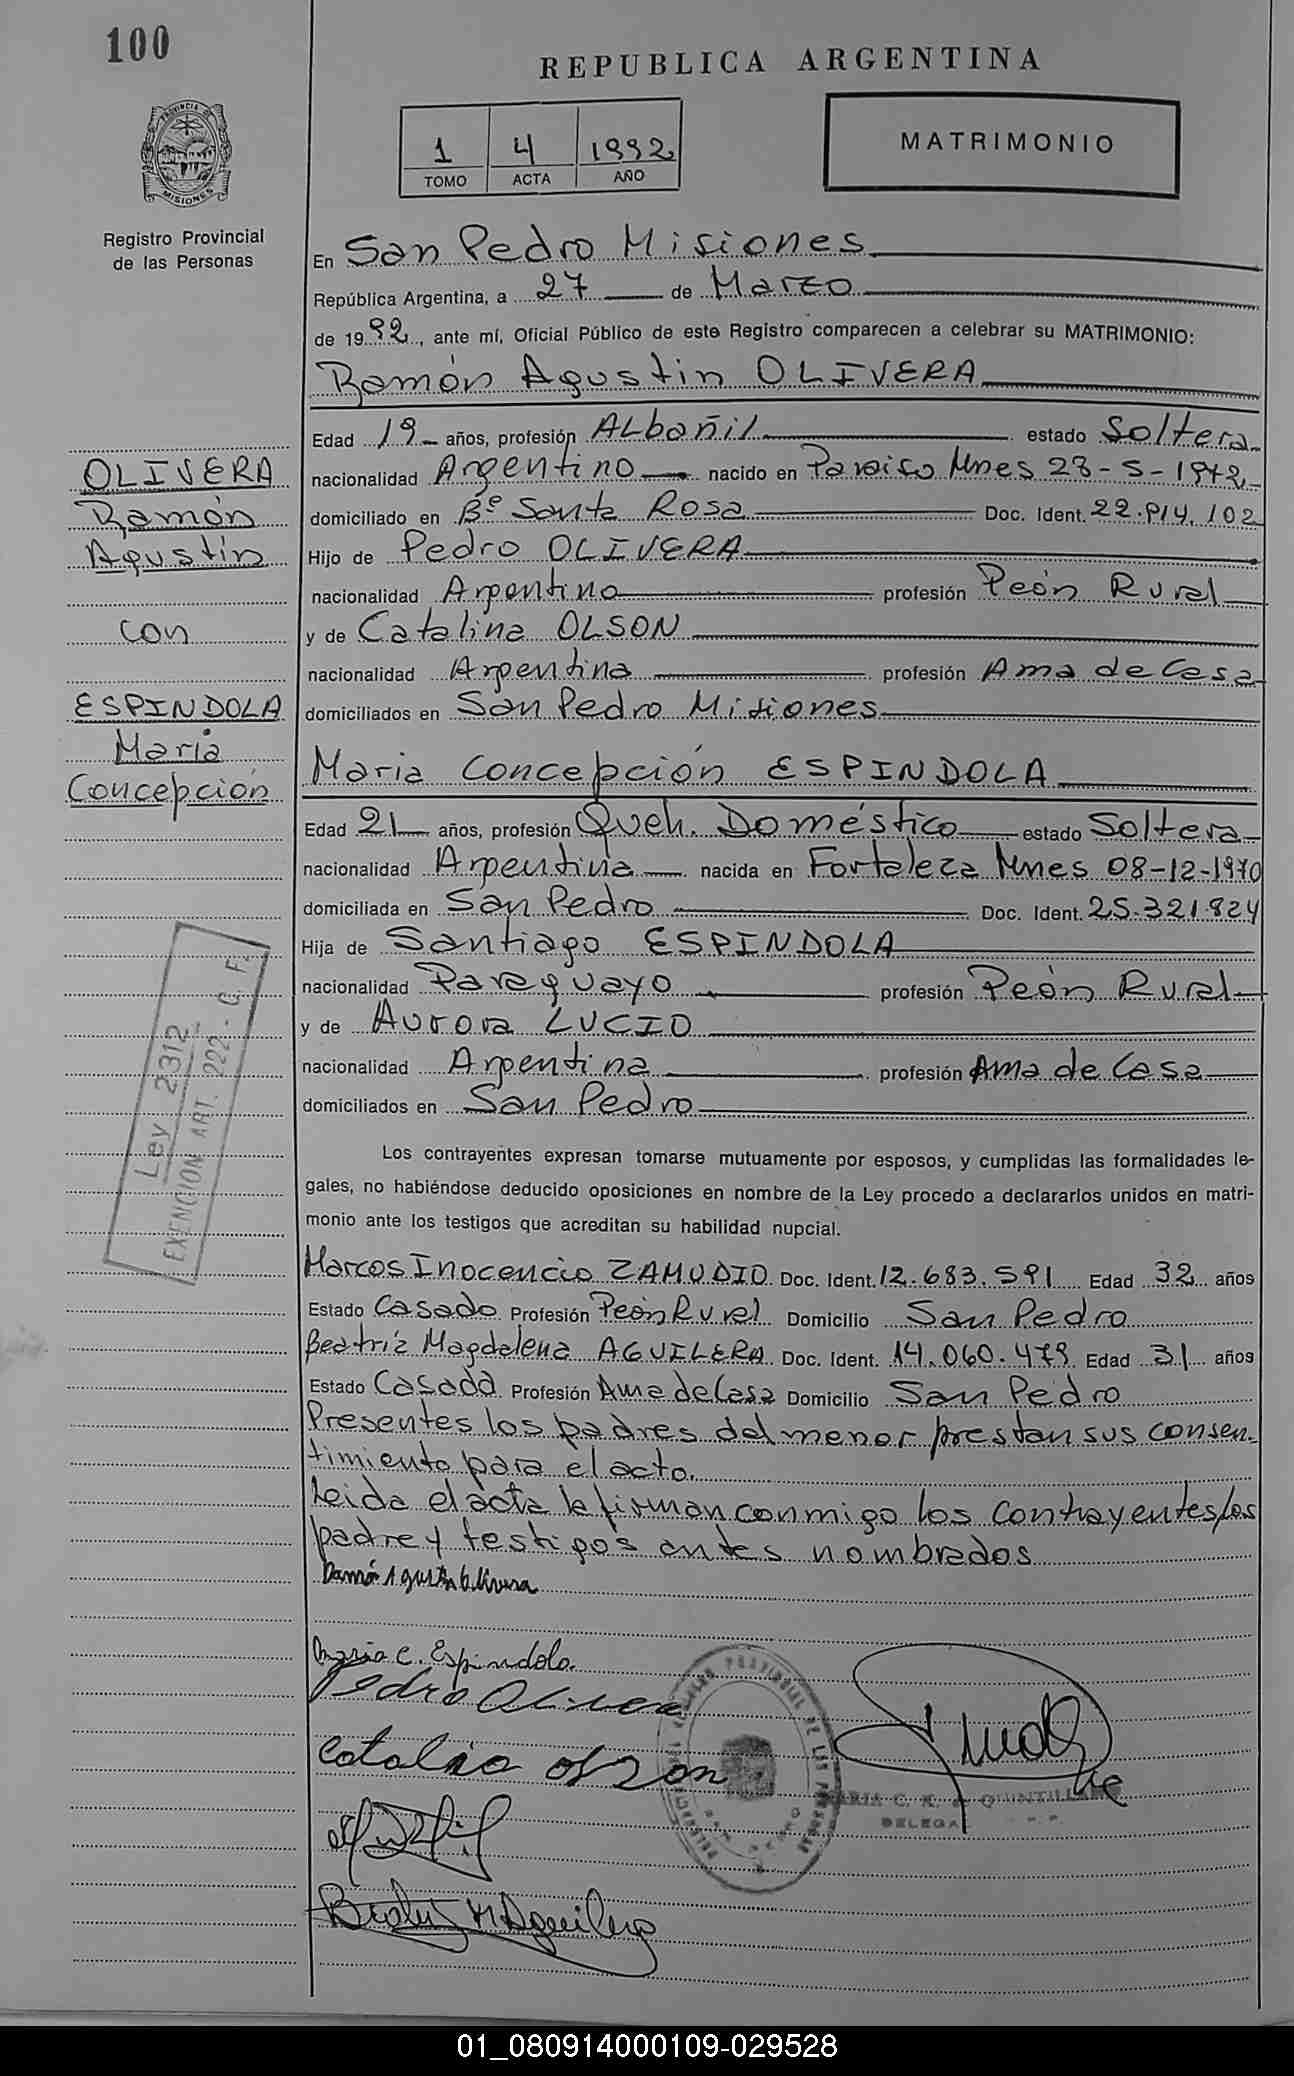 100
REPUBLICA ARGENTINA
PROVINCIA DE
MISIONES
1 4 1992
TOMO ACTA AÑO
MATRIMONIO
Registro Provincial
de las Personas
En San Pedro Misiones
República Argentina, a 27 de Marzo
de 1992, ante mí, Oficial Público de este Registro comparecen a celebrar su MATRIMONIO:
Ramón Agustin OLIVERA
Edad 19 años, profesión ALbañil estado Soltera
OLIVERA
nacionalidad Argentino nacido en Paraiso Mnes 28-5-1972
Ramón
domiciliado en Bº Santa Rosa Doc. Ident. 22.814.102
Agustín
Hijo de Pedro OLIVERA
nacionalidad Argentino profesión Peón Rural
con
y de Catalina OLSON
nacionalidad Argentina profesión Ama de Casa
ESPINDOLA
domiciliados en San Pedro Misiones
Maria
Concepción
Maria Concepción ESPINDOLA
Edad 21 años, profesión Queh. Doméstico estado Soltera
nacionalidad Argentina nacida en Fortaleza Mnes 08-12-1970
domiciliada en San Pedro Doc. Ident. 25.321.824
Hija de Santiago ESPINDOLA
nacionalidad Paraguayo profesión Peón Rural
y de Aurora LUCIO
nacionalidad Argentina profesión Ama de Casa
domiciliados en San Pedro
Ley 2312
EXENCION ART. 222 - C. F.
Los contrayentes expresan tomarse mutuamente por esposos, y cumplidas las formalidades le-
gales, no habiéndose deducido oposiciones en nombre de la Ley procedo a declararlos unidos en matri-
monio ante los testigos que acreditan su habilidad nupcial.
Marcos Inocencio ZAMUDIO Doc. Ident. 12.683.591 Edad 32 años
Estado Casado Profesión Peón Rural Domicilio San Pedro
Beatríz Magdalena AGUILERA Doc. Ident. 14.060.479 Edad 31 años
Estado Casada Profesión Ama de Casa Domicilio San Pedro
Presentes los padres del menor prestan sus consen-
timiento para el acto.
Leida el acta la firman conmigo los contrayentes, los
padre y testigos antes nombrados
Ramón Agustin Olivera
Maria C. Espindola.
Pedro Olivera
Catalina Olson
Beatriz M Aguilera
PROVINCIAL DE LAS PERSONAS
SAN PEDRO
MARIA C. K. QUINTILLAN
DELEGA
01_080914000109-029528